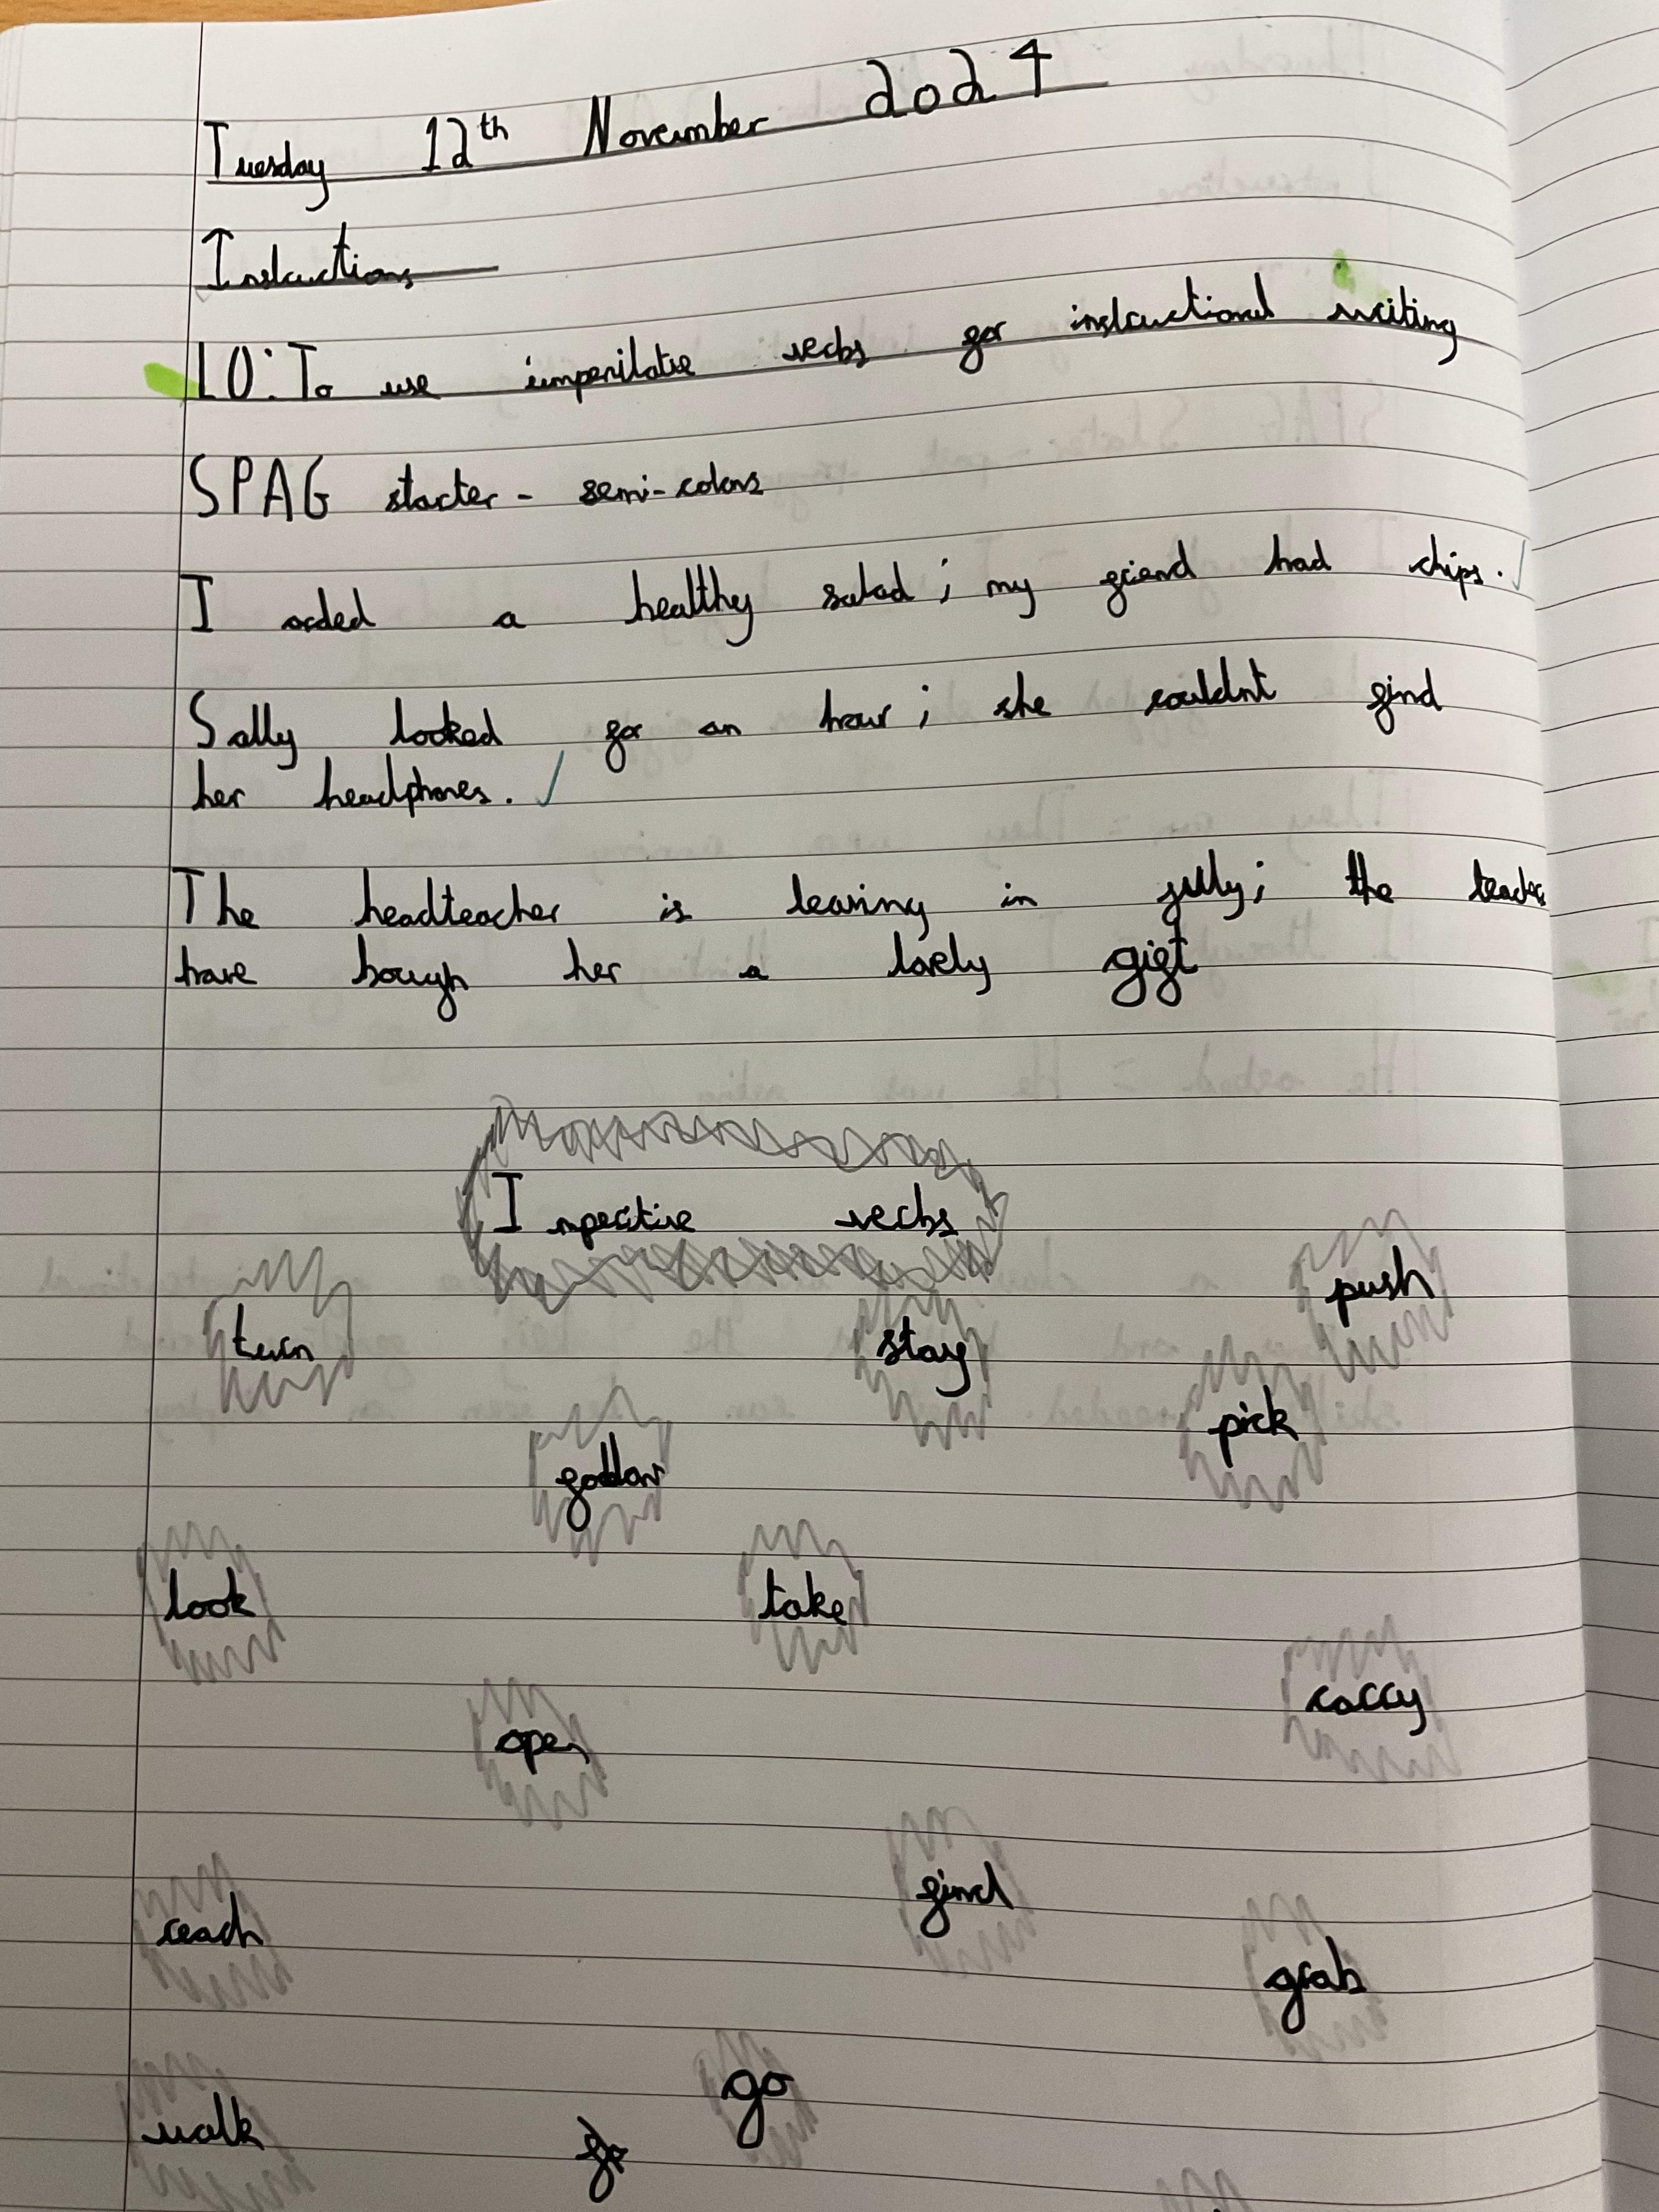 Tuesday 12th November 2024
Instructions
LO: To use imperilative verbs for instructional writing
SPAG starter - semi-colons
I orded a healthy salad; my friend had chips.
Sally looked for an hour; she couldnt find
her headphones.
The headteacher is leaving in jully; the teachers
have bough her a lovely gift
Imperitive verbs
push
turn
stay
pick
follow
look
take
carry
open
find
reach
grab
go
walk